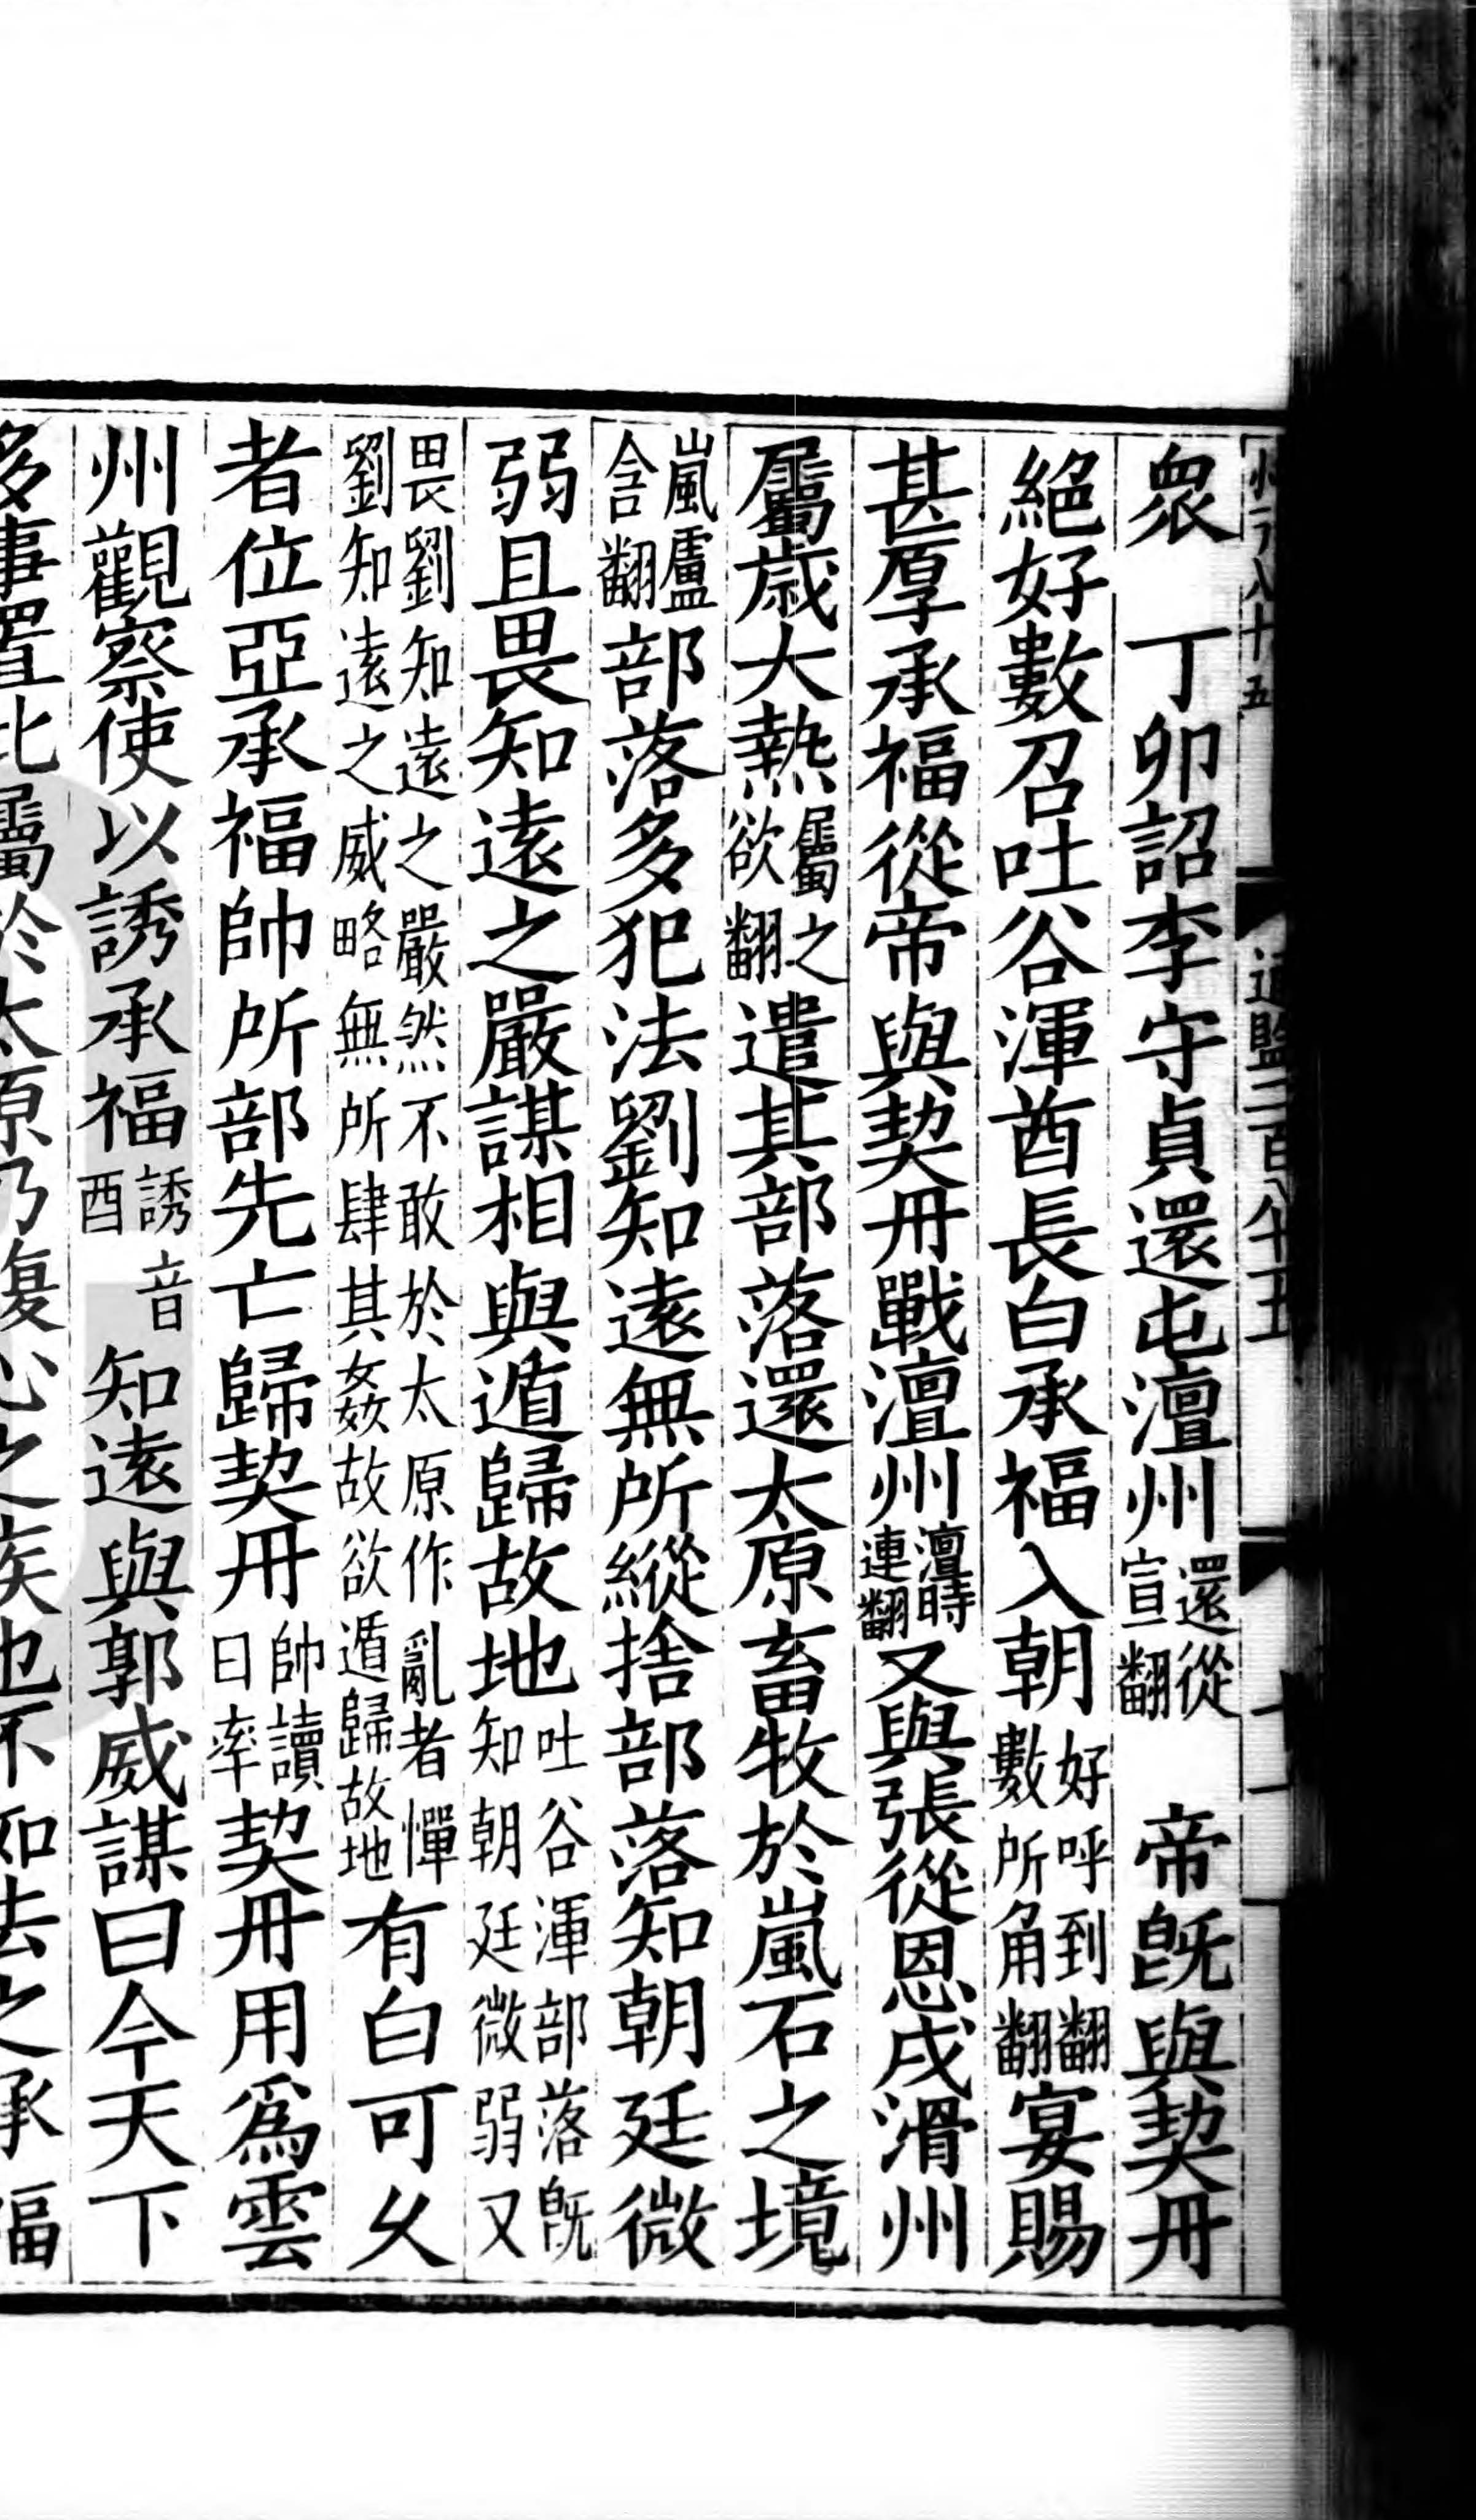 通鑑二百八十五
衆　丁卯詔李守貞還屯澶州還從宣翻　帝旣與契丹
絕好數召吐谷渾酋長白承福入朝好呼到翻數所角翻宴賜
甚厚承福從帝與契丹戰澶州澶時連翻又與張從恩戍滑州
屬歲大熱屬之欲翻遣其部落還太原畜牧於嵐石之境
嵐盧含翻部落多犯法劉知遠無所縱捨部落知朝廷微
弱且畏知遠之嚴謀相與遁歸故地吐谷渾部落旣知朝廷微弱又
畏劉知遠之嚴然不敢於太原作亂者憚劉知遠之威略無所肆其姦故欲遁歸故地有白可久
者位亞承福帥所部先亡歸契丹帥讀曰率契丹用爲雲
州觀察使以誘承福誘音酉知遠與郭威謀曰今天下
多事置此屬於太原乃腹心之疾也不如去之承福